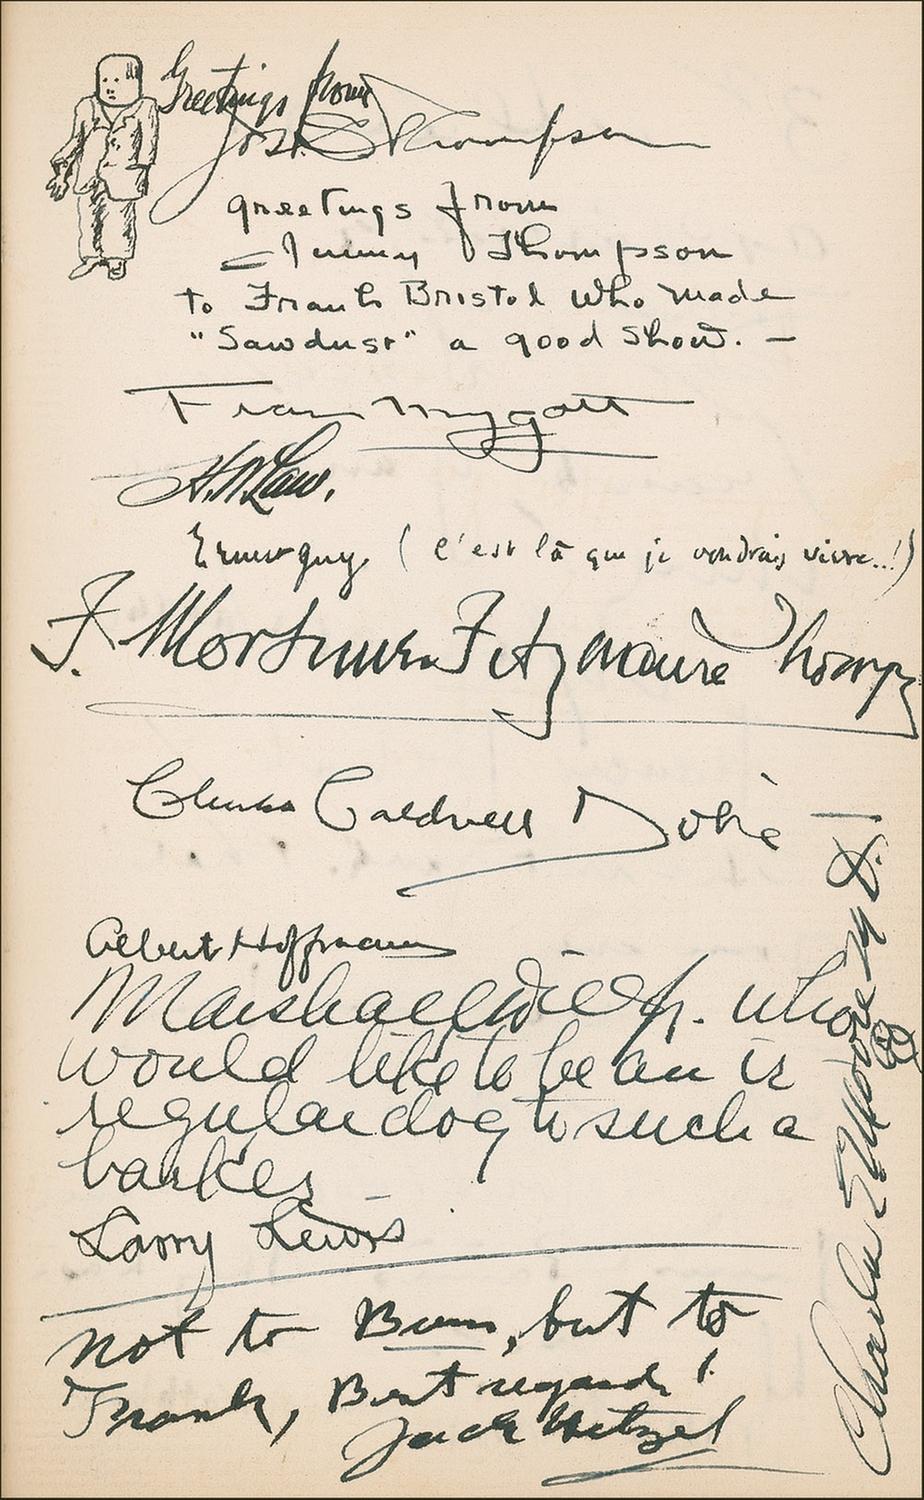 Greetings from
Jos. S Thompson
greetings from
Jimmy Thompson
to Frank Bristol who made
"Sawdust" a good show. —
Fran Mygatt
H. N. Law.
Ernest guy (c'est là que je voudrais vivre...!)
F. Mortimer Fitzmaurice Thomp
Charles Caldwell Dobie
Albert Hoffmann
Marshall Dill Jr. who
would like to be an ir
regular dog to such a
barker
Larry Lewis
Not to Bum, but to
Frank, Best regards!
Jack Hetzel
Charles E Moore